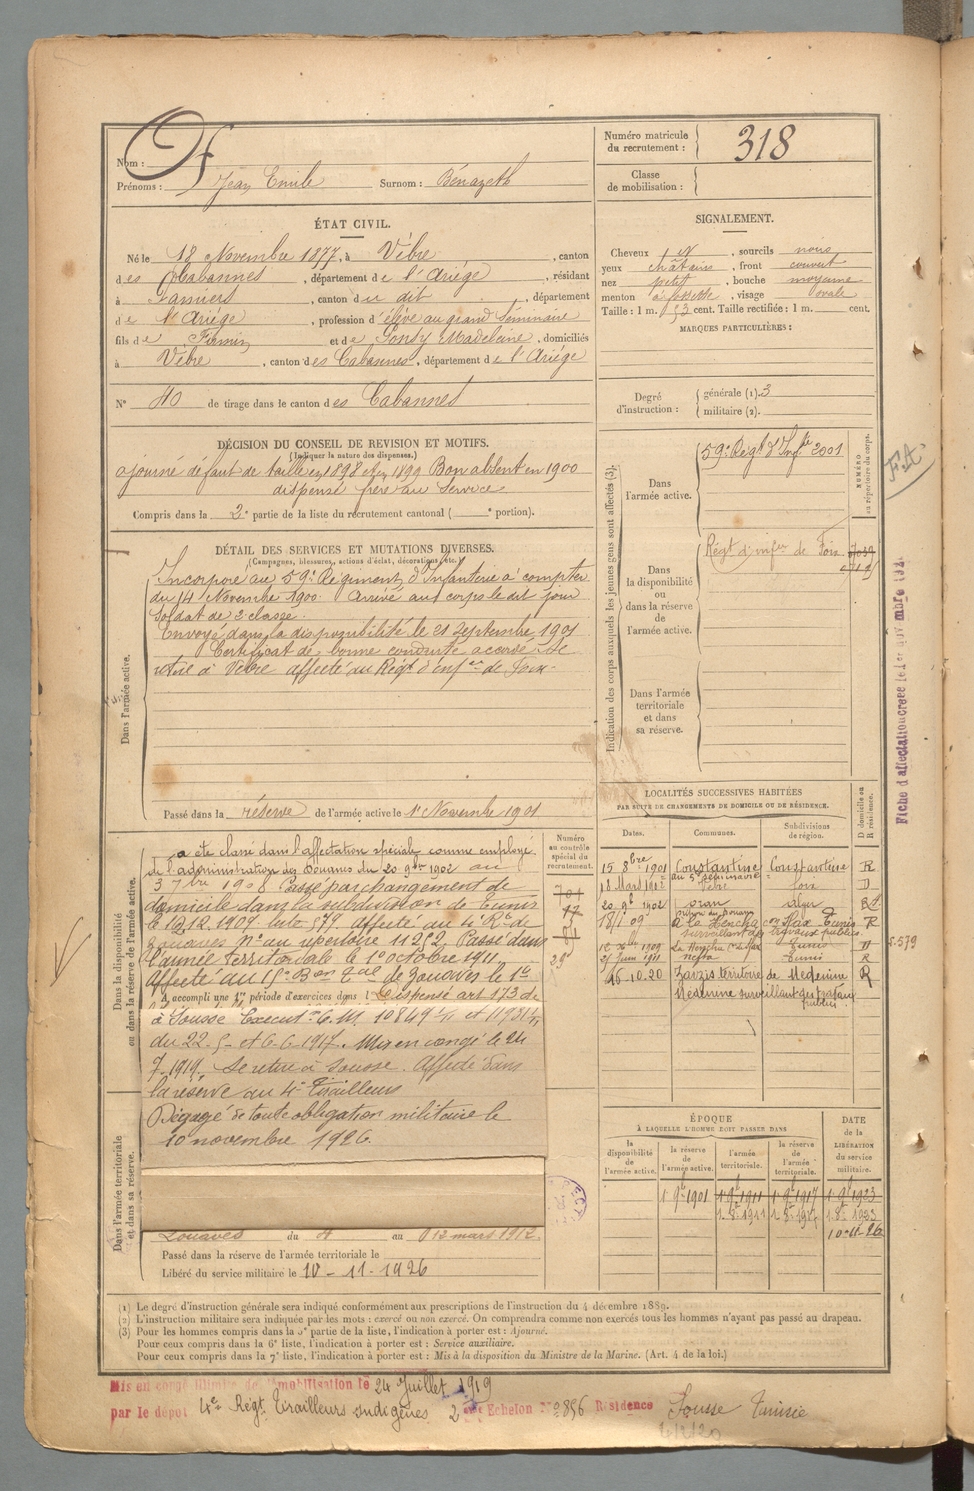 Nom :
Prénoms : Jean Emile Surnom : Bénazeth
Numéro matricule du recrutement : 318
Classe de mobilisation :
ÉTAT CIVIL.
Né le 18 Novembre 1877, à Vèbre, canton
des Cabannes, département de l'Ariége, résidant
à Pamiers, canton du dit, département
de l'Ariége, profession d'élève au grand séminaire
fils de Firmin et de Madeleine, domiciliés
à Vèbre, canton des Cabannes, département de l'Ariége
N° 40 de tirage dans le canton des Cabannes
SIGNALEMENT.
Cheveux, sourcils noirs
yeux châtains, front couvert
nez petit, bouche moyenne
menton à fossette, visage ovale
Taille : 1 m. 53 cent. Taille rectifiée : 1 m. cent.
MARQUES PARTICULIÈRES :
Degré d'instruction :
générale (1). 3
militaire (2).
DÉCISION DU CONSEIL DE REVISION ET MOTIFS.
(Indiquer la nature des dispenses.)
ajourné défaut de taille en 1898 et en 1899 Bon absent en 1900
dispensé frère au service
Compris dans la 2e partie de la liste du recrutement cantonal ( e portion).
DÉTAIL DES SERVICES ET MUTATIONS DIVERSES.
(Campagnes, blessures, actions d'éclat, décorations, etc.)
Dans l'armée active.
Incorporé au 59e Régiment d'Infanterie à compter
du 14 Novembre 1900. Arrivé au corps le dit jour
Soldat de 2e classe.
Envoyé dans la disponibilité le 21 Septembre 1901
Certificat de bonne conduite accordé. Se
retire à Vèbre affecté au Régt d'infie de Foix
Passé dans la réserve de l'armée active le 1er Novembre 1901
Indication des corps auxquels les jeunes gens sont affectés (3).
NUMÉRO au répertoire du corps.
Dans l'armée active.
59e Régt d'Infie 2001
Dans la disponibilité ou dans la réserve de l'armée active.
Régt d'infie de Foix
Dans l'armée territoriale et dans sa réserve.
Fiche d'affectation créée le 1er novembre 192
Dans la disponibilité ou dans la réserve de l'armée active.
a été classé dans l'affectation spéciale comme employé
de l'administration des Douanes du 20 9bre 1902 au
3 7bre 1908 Passé par changement de
domicile dans la subdivision de Tunis
le 12.12.1909 liste 579 affecté au 4e Rt de
Zouaves n° au répertoire 11252. Passé dans
l'armée territoriale le 1er octobre 1911
Affecté au 15e Bon Tal de Zouaves le 1er
A accompli une 1re période d'exercices dans l Dispensé art 173 de
à Sousse
du 22-5- et 6-6-1917. Mis en congé le 24
7-1919. Se retire à Sousse. Affecté dans
la réserve au 4e Tirailleurs
Dégagé de toute obligation militaire le
10 novembre 1926
Dans l'armée territoriale et dans sa réserve.
Zouaves du 4 au 12 mars 1912.
Passé dans la réserve de l'armée territoriale le
Libéré du service militaire le 10 - 11 - 1926
Numéro au contrôle spécial du recrutement.
LOCALITÉS SUCCESSIVES HABITÉES
PAR SUITE DE CHANGEMENTS DE DOMICILE OU DE RÉSIDENCE.
Dates. Communes. Subdivisions de région. D domicile ou R résidence.
15 8bre 1901 Constantine Constantine R
au gd séminaire
18 Mars 1902 Vèbre Foix D
20 9e 1902
18/1/09 à la Hencha Tunis R
surveillant des travaux publics
12 Xbre 1909 La Hencha Tunis D
21 Juin 1911 Nefta Tunis R
16-10.20 Zarzis territoire de Medenine R
Medenine surveillant des travaux publics
5.579
ÉPOQUE
À LAQUELLE L'HOMME DOIT PASSER DANS
DATE de la LIBÉRATION du service militaire.
la disponibilité de l'armée active.
la réserve de l'armée active.
l'armée territoriale.
la réserve de l'armée territoriale.
1 9e 1901 1 9e 1911 1 9e 1917 1 9e 1923
1. 8e 1911 1 8e 1917 1 8e 1923
10-11-26
(1) Le degré d'instruction générale sera indiqué conformément aux prescriptions de l'instruction du 4 décembre 1889.
(2) L'instruction militaire sera indiquée par les mots : exercé ou non exercé. On comprendra comme non exercés tous les hommes n'ayant pas passé au drapeau.
(3) Pour les hommes compris dans la 5e partie de la liste, l'indication à porter est : Ajourné.
Pour ceux compris dans la 6e liste, l'indication à porter est : Service auxiliaire.
Pour ceux compris dans la 7e liste, l'indication à porter est : Mis à la disposition du Ministre de la Marine. (Art. 4 de la loi.)
Mis en congé illimité de démobilisation le 24 Juillet 1919
par le dépôt 4e Régt Tirailleurs Indigènes 2 Echelon N° 896 Résidence Sousse Tunisie